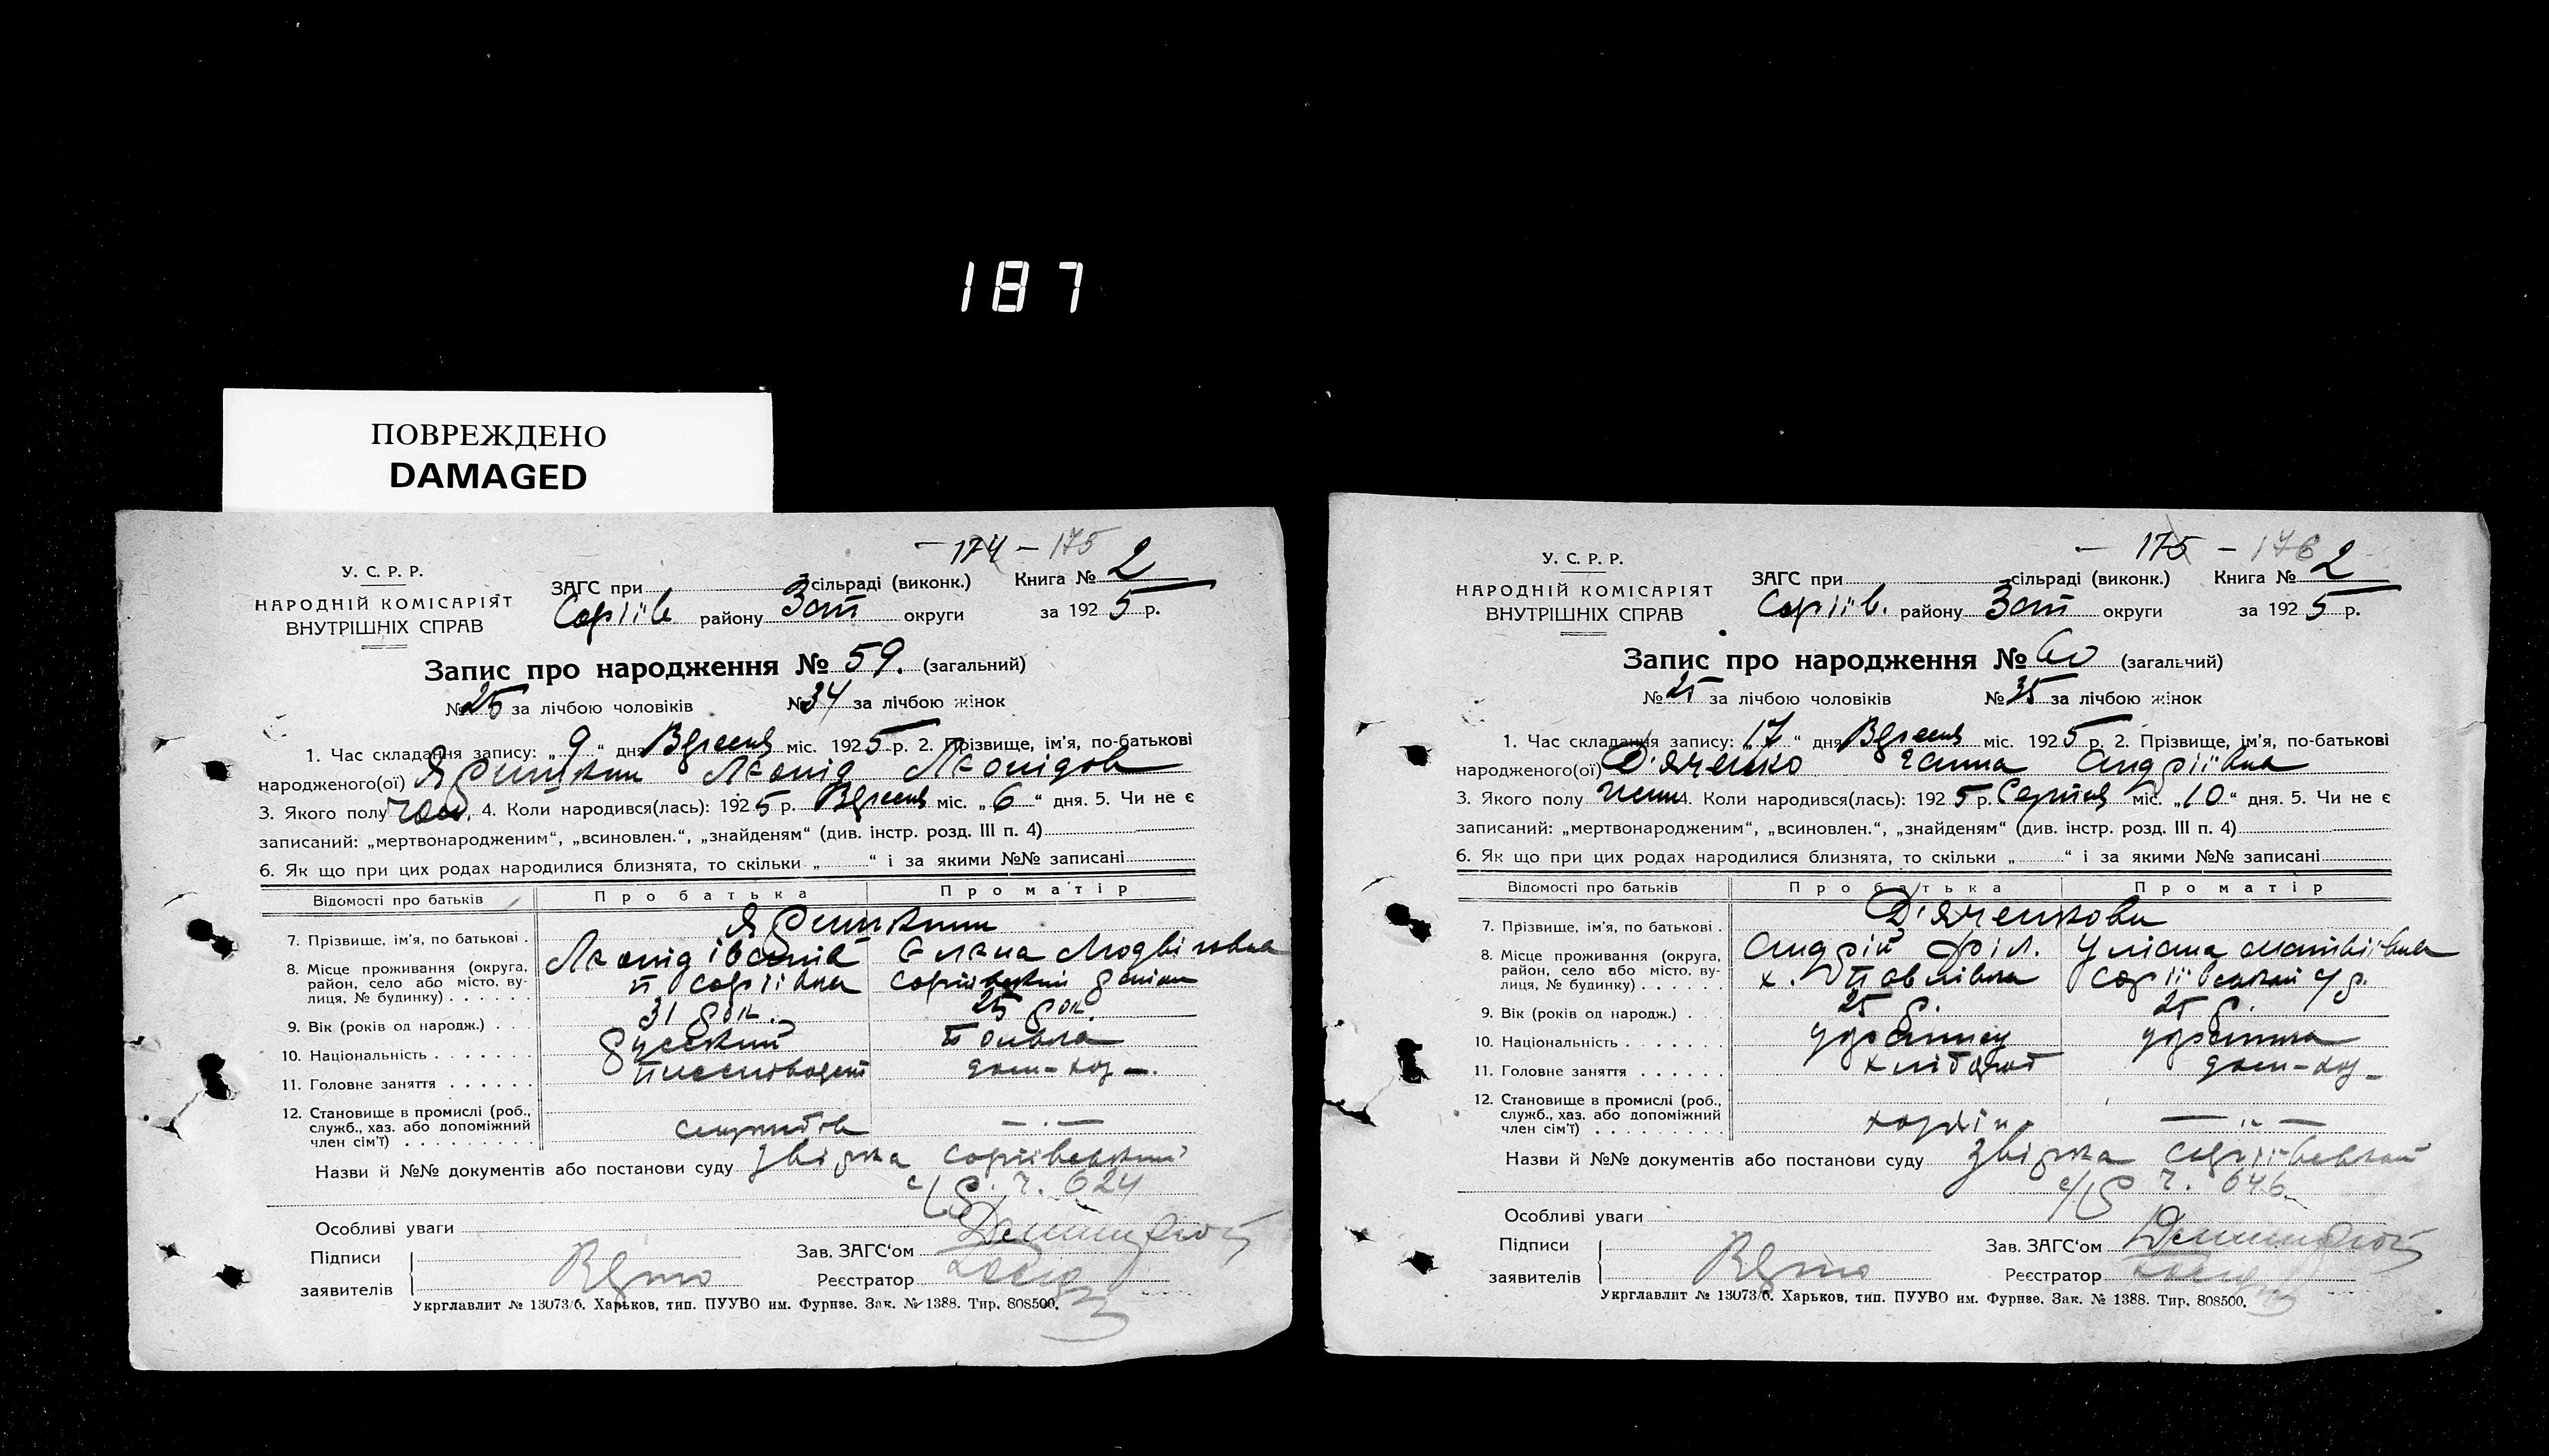 187
ПОВРЕЖДЕНО
DAMAGED
— 174 — 175
У. С. Р. Р.
НАРОДНІЙ КОМІСАРІЯТ
ВНУТРІШНІХ СПРАВ
ЗАГС при сільраді (виконк.) Книга № 2
Сергіїв. району Зап округи за 1925 р.
Запис про народження № 59. (загальний)
№ 25 за лічбою чоловіків № 34 за лічбою жінок
1. Час складання запису: „ 9 “ дня Вересня міс. 1925 р. 2. Прізвище, ім’я, по-батькові
народженого(ої) Леонід Леонідов
3. Якого полу чол. 4. Коли народився(лась): 1925 р. Вересня міс. „ 6 “ дня. 5. Чи не є
записаний: „мертвонародженим“, „всиновлен.“, „знайденям“ (див. інстр. розд. III п. 4)
6. Як що при цих родах народилися близнята, то скільки „ “ і за якими №№ записані
Відомості про батьків Про батька Про матір
7. Прізвище, ім’я, по батькові .
Леонід Іванів Єлена Людвіговна
8. Місце проживання (округа, район, село або місто, вулиця, № будинку) . . . . . .
п Сергіївка
9. Вік (років од народж.) . . . 31 рок. 25 рок.
10. Національність . . . . . . . руський
11. Головне заняття . . . . . . дом-хоз —.
12. Становище в промислі (роб., служб., хаз. або допоміжний член сім’ї) . . . . . . . . . — . —
Назви й №№ документів або постанови суду Звірка Сергіївський
с/р. ч. 624
Особливі уваги
Підписи Зав. ЗАГС‘ом
заявителів Реєстратор
Укрглавлит № 13073/6. Харьков, тип. ПУУВО им. Фурнзе. Зак. № 1388. Тир. 808500.
— 175 — 176
У. С. Р. Р.
НАРОДНІЙ КОМІСАРІЯТ
ВНУТРІШНІХ СПРАВ
ЗАГС при сільраді (виконк.) Книга № 2
Сергіїв. району Зап округи за 1925 р.
Запис про народження № 60 (загальний)
№ 25 за лічбою чоловіків № 35 за лічбою жінок
1. Час складання запису: „ 17 “ дня Вересня міс. 1925 р. 2. Прізвище, ім’я, по-батькові
народженого(ої) Д'яченко Ганна Андріївна
3. Якого полу жін 4. Коли народився(лась): 1925 р. Серпня міс. „ 10 “ дня. 5. Чи не є
записаний: „мертвонародженим“, „всиновлен.“, „знайденям“ (див. інстр. розд. III п. 4)
6. Як що при цих родах народилися близнята, то скільки „ “ і за якими №№ записані
Відомості про батьків Про батька Про матір
Д'яченкови
7. Прізвище, ім’я, по батькові .
Андрій Філ. Уліана Матвіївна
8. Місце проживання (округа, район, село або місто, вулиця, № будинку) . . . . . .
х. Павлівка
9. Вік (років од народж.) . . . 25 р. 25 р.
10. Національність . . . . . . . українец українка
11. Головне заняття . . . . . . хлібороб дом-хоз —
12. Становище в промислі (роб., служб., хаз. або допоміжний член сім’ї) . . . . . . . . . хозяїн — „ —
Назви й №№ документів або постанови суду Звірка Сергіївской
с/р ч. 646
Особливі уваги
Підписи Зав. ЗАГС‘ом
заявителів Реєстратор
Укрглавлит № 13073/6. Харьков, тип. ПУУВО им. Фурнзе. Зак. № 1388. Тир. 808500.